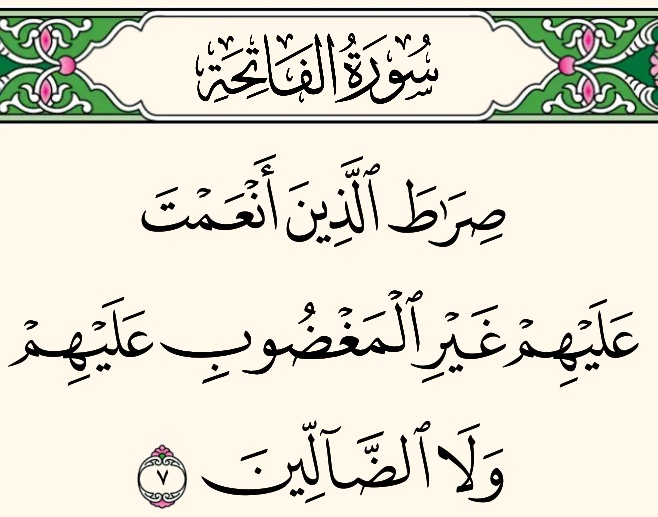 سُورَةُ الفَاتِحَةِ
صِرَٰطَ ٱلَّذِينَ أَنْعَمْتَ
عَلَيْهِمْ غَيْرِ ٱلْمَغْضُوبِ عَلَيْهِمْ
وَلَا ٱلضَّآلِّينَ ٧